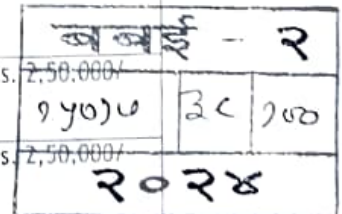 बबई - २
s. 2,50,000/-
३८ १००
s. 2,50,000/-
२०२४